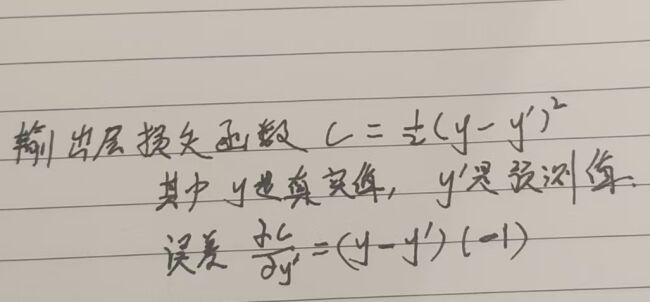 输出层损失函数 C = ½(y - y')²
其中 y是真实值, y'是预测值.
误差 ∂C/∂y' = (y - y')(-1)